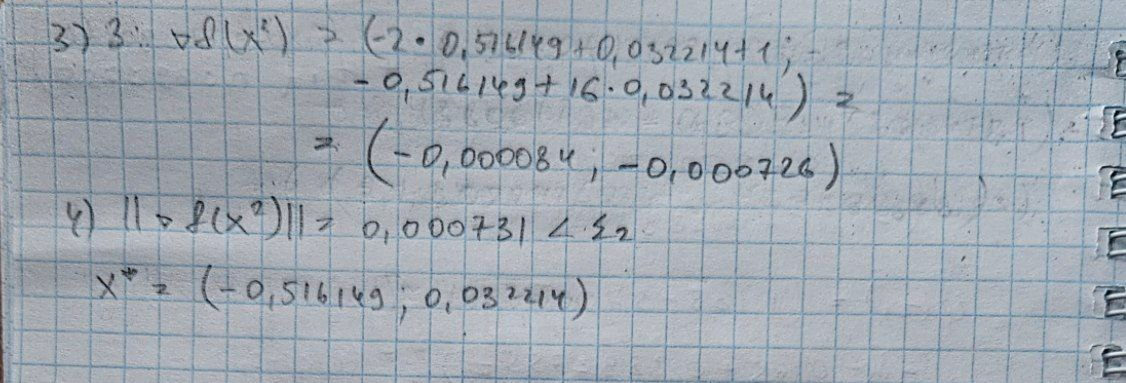 3) 3: ∇f(x²) = (-2·0,516149+0,032214+1;
-0,516149+16·0,032214) =
= (-0,000084; -0,000726)
4) ||∇f(x²)|| = 0,000731 < ε₂
x* = (-0,516149; 0,032214)